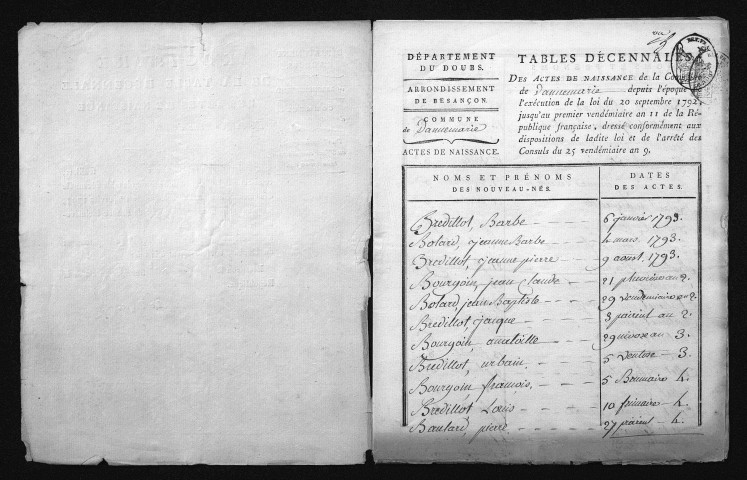 DÉPARTEMENT
DU DOUBS.
ARRONDISSEMENT
DE BESANÇON.
COMMUNE
de Dannemarie
ACTES DE NAISSANCE.
TABLES DÉCENNALES
DES ACTES DE NAISSANCE de la Commune
de Dannemarie depuis l'époque de
l'exécution de la loi du 20 septembre 1792,
jusqu'au premier vendémiaire an 11 de la Ré-
publique française, dressé conformément aux
dispositions de ladite loi et de l'arrêté des
Consuls du 25 vendémiaire an 9.
NOMS ET PRÉNOMS
DES NOUVEAU-NÉS.
DATES
DES ACTES.
Bredillot, Barbe - - - 6 janvier 1793.
Bolard, jeanne Barbe - - 4 mars 1793.
Bredillot, jeanne pierre - - 9 aoust. 1793.
Bourgoin, jean Claude - - 21 pluviose an 2.
Bolard, jean Baptiste - - - 29 vendemiaire an 2.
Bredillot, jaque - - - 3 pairial an 2.
Bourgoin, anatoille - - - 29 nivose an 3.
Bredillot, urbain - - - 5 Ventose - 3.
Bourgoin francois, - - - 5 Brumaire 4.
Bredillot Louis - - - 10 frimaire - 4.
Boulard, pierre - - - 27 pairial - 4.